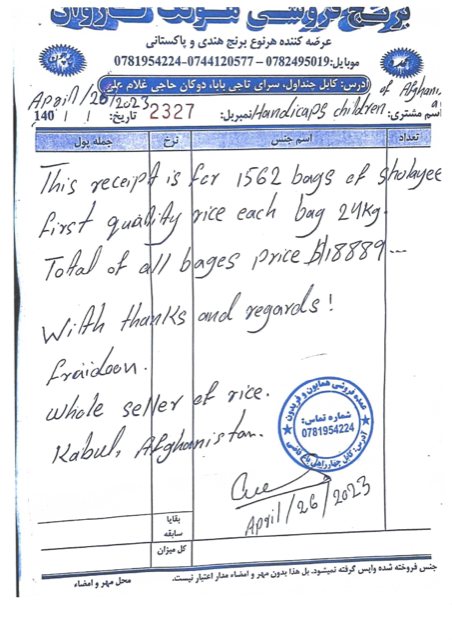 برنج فروشی
عرضه کننده هر نوع برنج هندی و پاکستانی
موبایل: 0782495019 - 0744120577 - 0781954224
آدرس: کابل چنداول، سرای تاجی بابا، دوکان حاجی غلام علی
of Afghani
اسم مشتری: Handicaps children نمبر بل: 2327 تاریخ: / / 140
April/26/2023
تعداد اسم جنس نرخ جمله پول
This receipt is for 1562 bags of sholayee
first quality rice each bag 24kg.
Total of all bages price $18889...
With thanks and regards!
fraidoon.
whole seller of rice.
Kabul, Afghanistan.
عمده فروشی همایون و فریدون
شماره تماس:
0781954224
April/26/2023
بقایا
سابقه
کل میزان
جنس فروخته شده واپس گرفته نمیشود. بل هذا بدون مهر و امضاء مدار اعتبار نیست.
محل مهر و امضاء